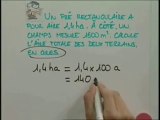 UN PRÉ RECTANGULAIRE A
POUR AIRE 1,4 ha. À CÔTÉ, UN
CHAMPS MESURE 1800 m². CALCULE
L'AIRE TOTALE DES DEUX TERRAINS,
EN ARES.
1,4 ha = 1,4 × 100 a
= 140